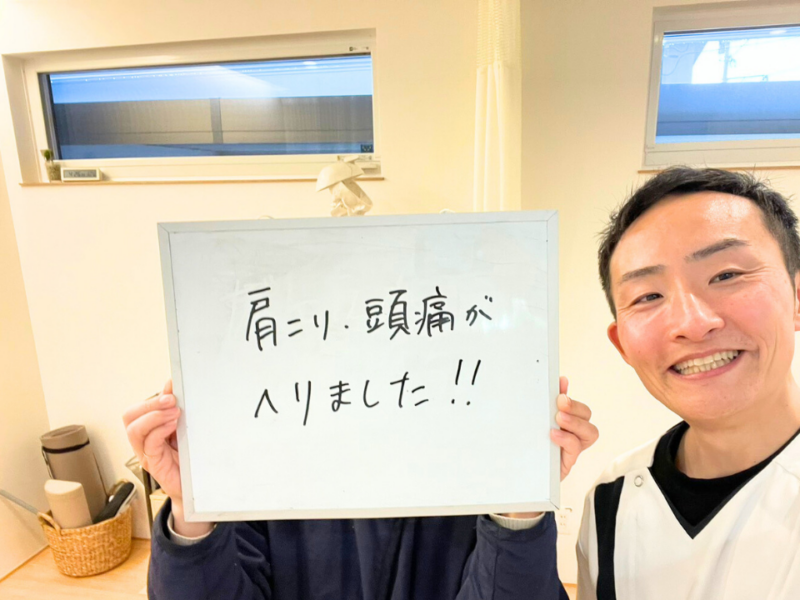 肩こり・頭痛が
へりました!!